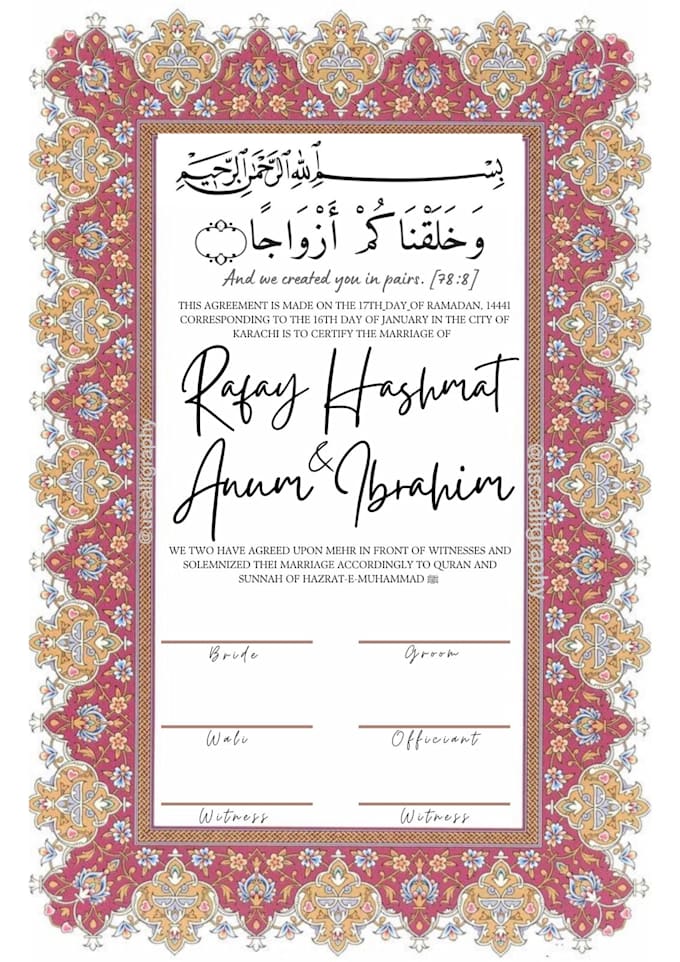 بِسْمِ ٱللَّٰهِ ٱلرَّحْمَٰنِ ٱلرَّحِيمِ
وَخَلَقْنَاكُمْ أَزْوَاجًا
And we created you in pairs. [78:8]
THIS AGREEMENT IS MADE ON THE 17TH DAY OF RAMADAN, 14441
CORRESPONDING TO THE 16TH DAY OF JANUARY IN THE CITY OF
KARACHI IS TO CERTIFY THE MARRIAGE OF
Rafay Hashmat
&
Anum Ibrahim
WE TWO HAVE AGREED UPON MEHR IN FRONT OF WITNESSES AND
SOLEMNIZED THEI MARRIAGE ACCORDINGLY TO QURAN AND
SUNNAH OF HAZRAT-E-MUHAMMAD ﷺ
Bride Groom
Wali Officiant
Witness Witness
@uscalligraphy
@uscalligraphy